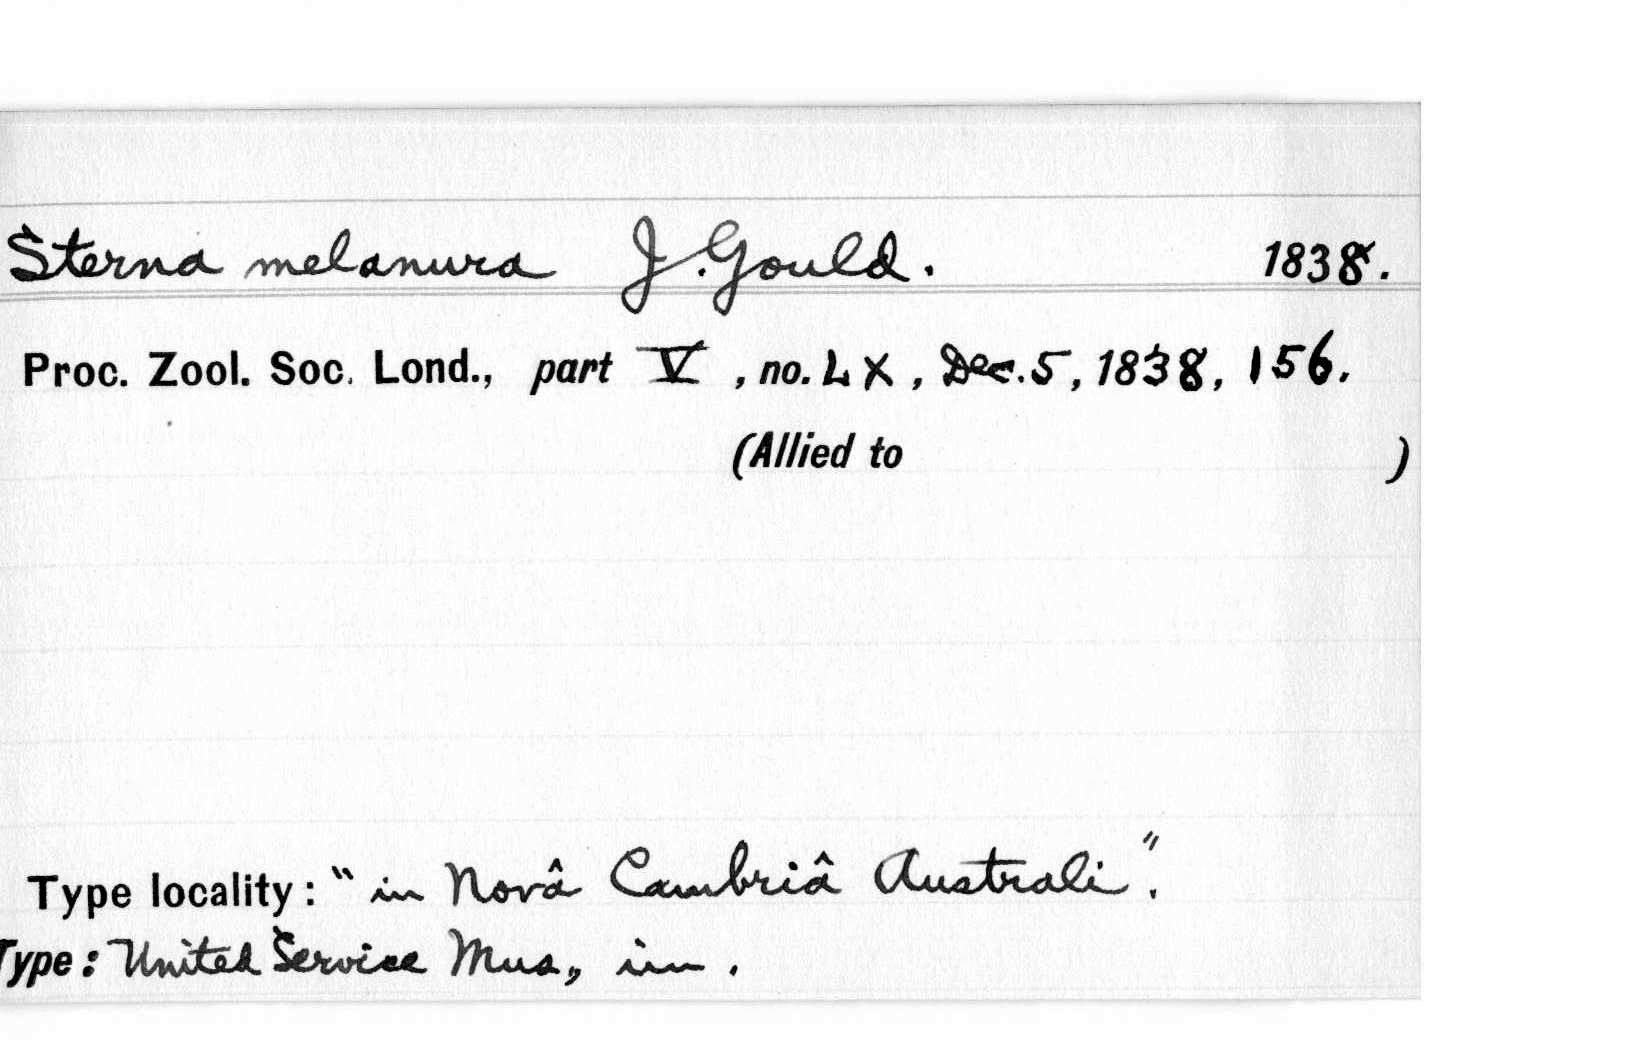 Sterna melanura J. Gould. 1838.
Proc. Zool. Soc. Lond., part V, no. LX, Dec. 5, 1838, 156.
(Allied to )
Type locality: "in Novâ Cambriâ Australi".
Type: United Service Mus.,